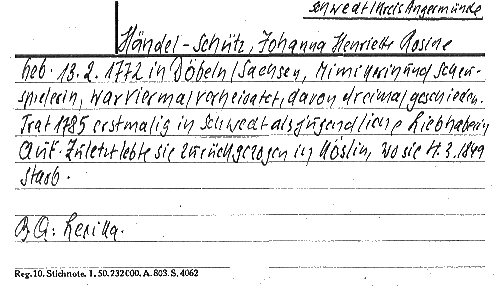 Schwedt/Kreis Angermünde
Händel-Schütz, Johanna Henriette Rosine
geb. 13.2.1772 in Döbeln/Sachsen, Mimikerin und Schau-
spielerin, war viermal verheiratet, davon dreimal geschieden.
Trat 1785 erstmalig in Schwedt als jugendliche Liebhaberin
auf. Zuletzt lebte sie zurückgezogen in Köslin, wo sie 4.3.1849
starb.
BG: Lexika.
Reg. 10. Stichnote. 1. 50. 232 000. A. 803. S. 4062